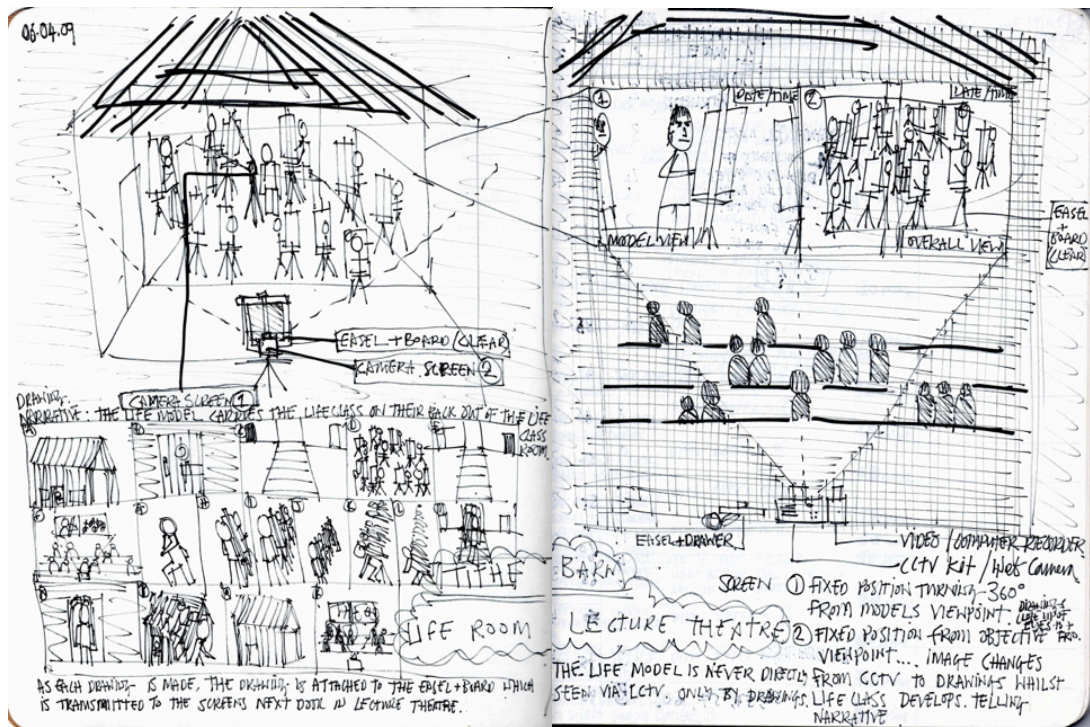 06.04.09
EASEL + BOARD (CLEAR)
CAMERA SCREEN 2
CAMERA SCREEN 1
DRAWING
NARRATIVE: THE LIFE MODEL CARRIES THE LIFE CLASS ON THEIR BACK OUT OF THE LIFE
CLASS
ROOM.
THE
LIFE ROOM
AS EACH DRAWING IS MADE, THE DRAWING IS ATTACHED TO THE EASEL + BOARD WHICH
IS TRANSMITTED TO THE SCREENS NEXT DOOR IN LECTURE THEATRE.
1
DATE/TIME
2
DATE/TIME
MODEL VIEW
OVERALL VIEW
EASEL
+
BOARD
(CLEAR)
EASEL + DRAWER
VIDEO / COMPUTER RECORDER
CCTV Kit / Web Camera
BARN
LECTURE THEATRE
SCREEN 1 FIXED POSITION TURNING 360°
FROM MODELS VIEWPOINT.
2 FIXED POSITION FROM OBJECTIVE
VIEWPOINT... IMAGE CHANGES
FROM CCTV TO DRAWINGS WHILST
LIFE CLASS DEVELOPS. TELLING
NARRATIVE
THE LIFE MODEL IS NEVER DIRECTLY
SEEN VIA CCTV. ONLY BY DRAWINGS.